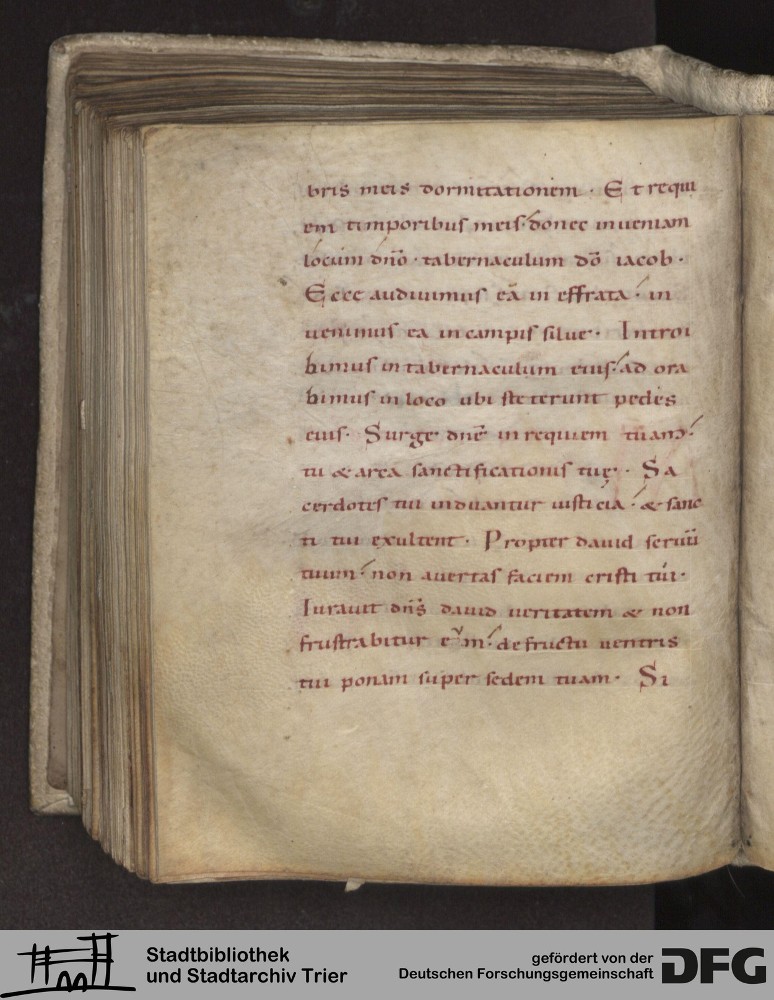 bris meis dormitationem · Et requi
em timporibus meis · donec inueniam
locum dn̄o · tabernaculum dō iacob ·
Ecce audiuimus eā in effrata · in
uenimus ea in campis silue · Introi
bimus in tabernaculum eius · ad ora
bimus in loco ubi steterunt pedes
eius · Surge dn̄e in requiem tuam ·
tu & arca sanctificationis tuę · Sa
cerdotes tui induantur iusticia · & sanc
ti tui exultent · Propter dauid seruū
tuum · non auertas faciem cristi tui ·
Iurauit dn̄s dauid ueritatem & non
frustrabitur eum · de fructu uentris
tui ponam super sedem tuam · Si
Stadtbibliothek
und Stadtarchiv Trier
gefördert von der
Deutschen Forschungsgemeinschaft
DFG